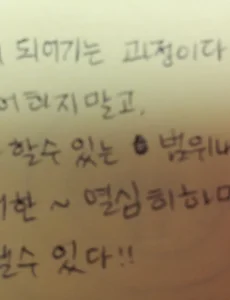 되어가는 과정이다
하지말고,
할수 있는 범위내
한 ~ 열심히하면
수 있다!!